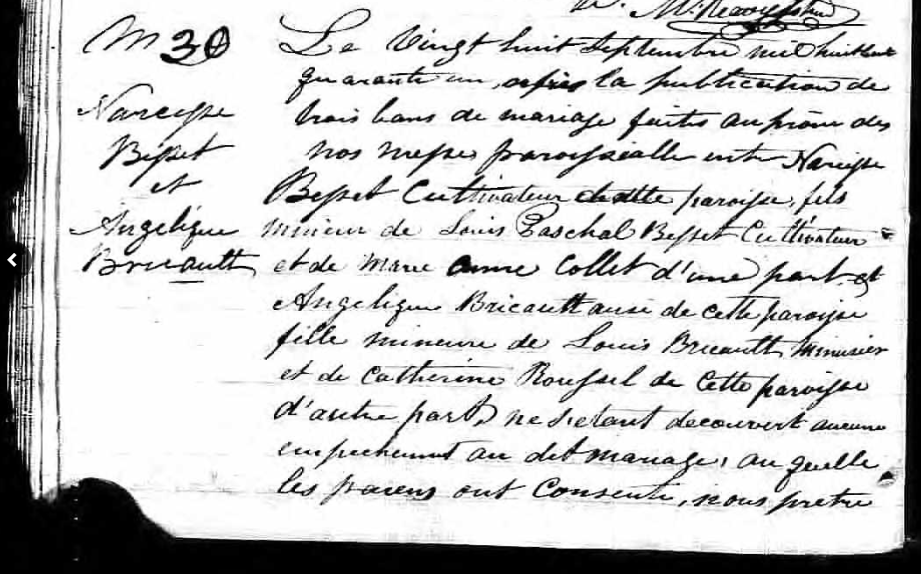 M 30
Narcisse
Besset
et
Angelique
Bricault
Le vingt huit Septembre mil huit cent
quarante un, après la publication de
trois bans de mariage faite au prône des
nos messe paroissialle entre Narcisse
Besset Cultivateur de cette paroisse, fils
mineur de Louis Paschal Besset Cultivateur
et de Marie anne Collet d'une part et
Angelique Bricault aussi de cette paroisse
fille mineure de Louis Bricault Menusier
et de Catherine Roussel de Cette paroisse
d'autre part, ne s'etant decouvert aucune
empechement au dit mariage, au quelle
les parens ont Consenti, nous pretre